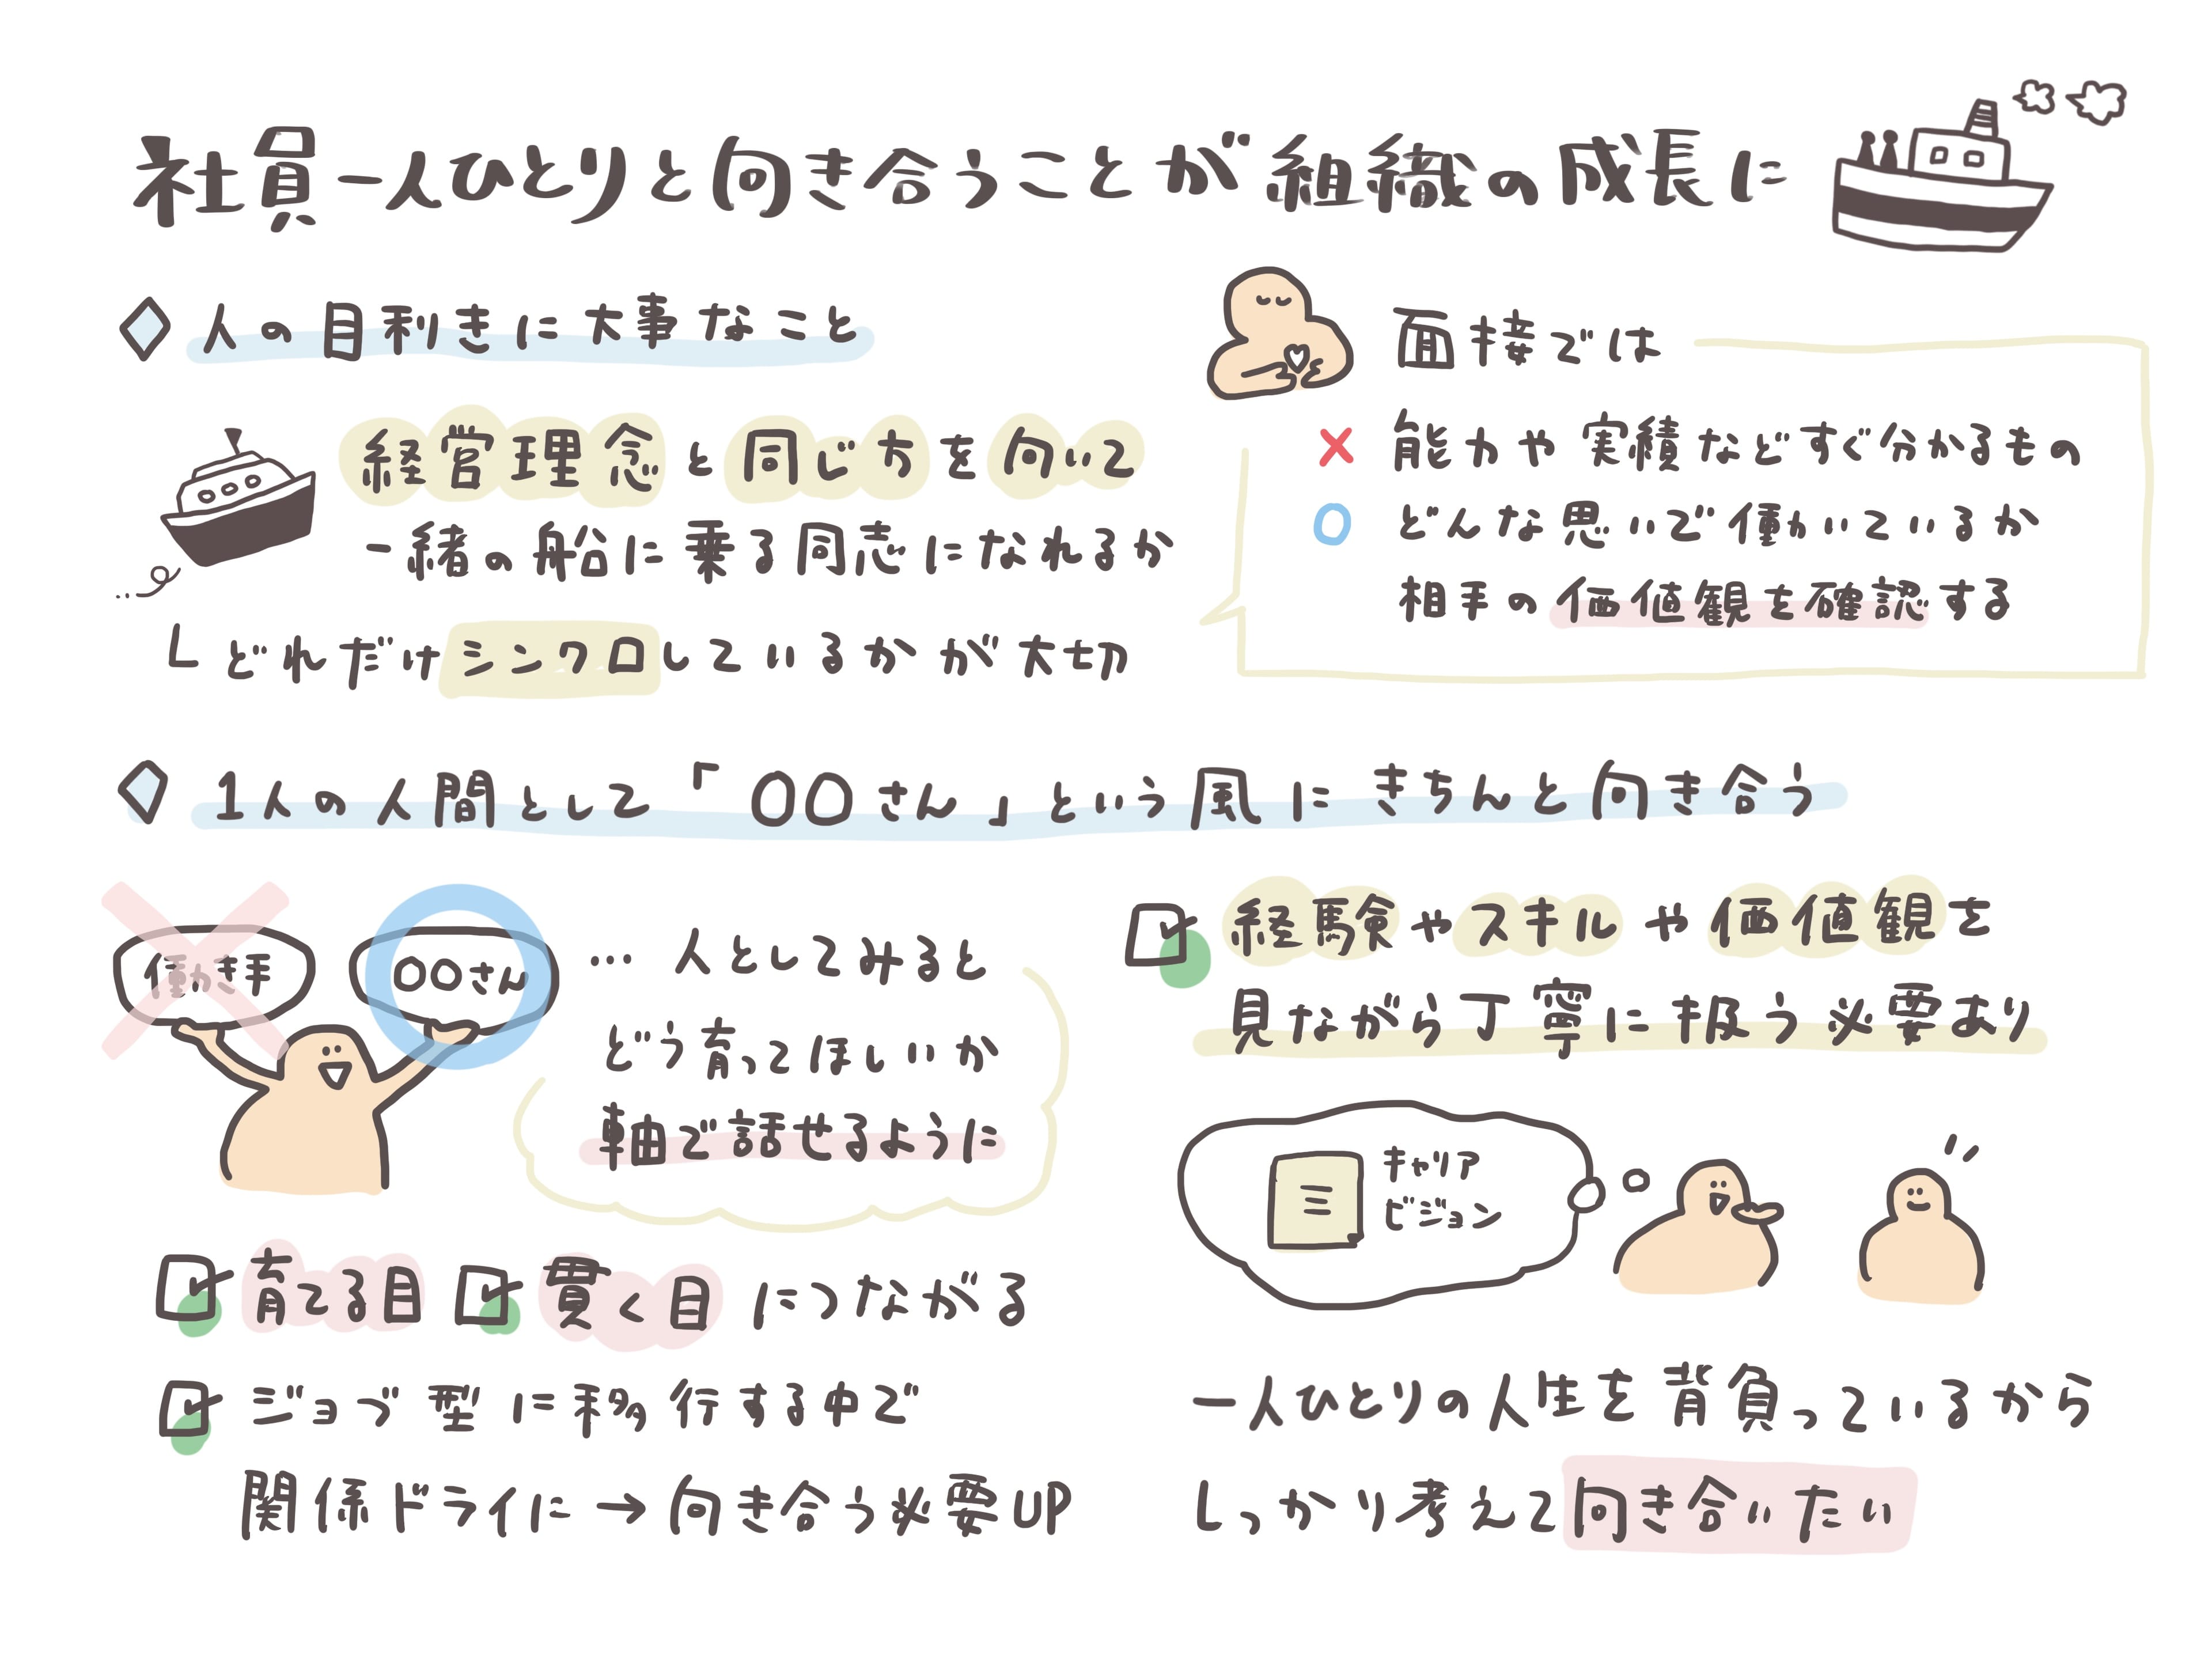 社員一人ひとりと向き合うことが組織の成長に
人の目利きに大事なこと
経営理念と同じ方を向いて
一緒の船に乗る同志になれるか
どれだけシンクロしているかが大切
面接では
× 能力や実績などすぐ分かるもの
○ どんな思いで働いているか
相手の価値観を確認する
1人の人間として「〇〇さん」という風にきちんと向き合う
働き手
〇〇さん
… 人としてみると
どう育ってほしいか
軸で話せるように
育てる目 貫く目 につながる
ジョブ型に移行する中で
関係ドライに→向き合う必要UP
経験やスキルや価値観を
見ながら丁寧に扱う必要あり
キャリア
ビジョン
一人ひとりの人生を背負っているから
しっかり考えて向き合いたい